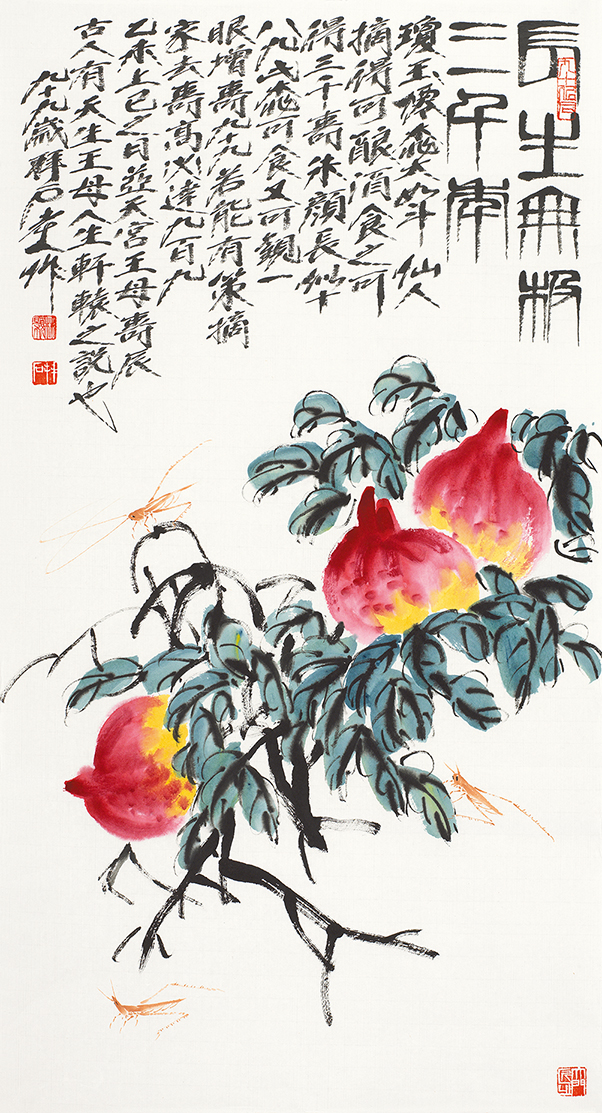 長生無極
三千年
瓊玉僊桃大如斗仙人
摘得可釀酒食之可
得三千壽朱顏長似十
八九此桃可食又可觀一
眼增壽九十九若能有策摘
家去壽高必達九百九
乙未上巳之日茲天宮王母壽辰
古人有天生王母人生軒轅之說也
九十九歲群石堂作